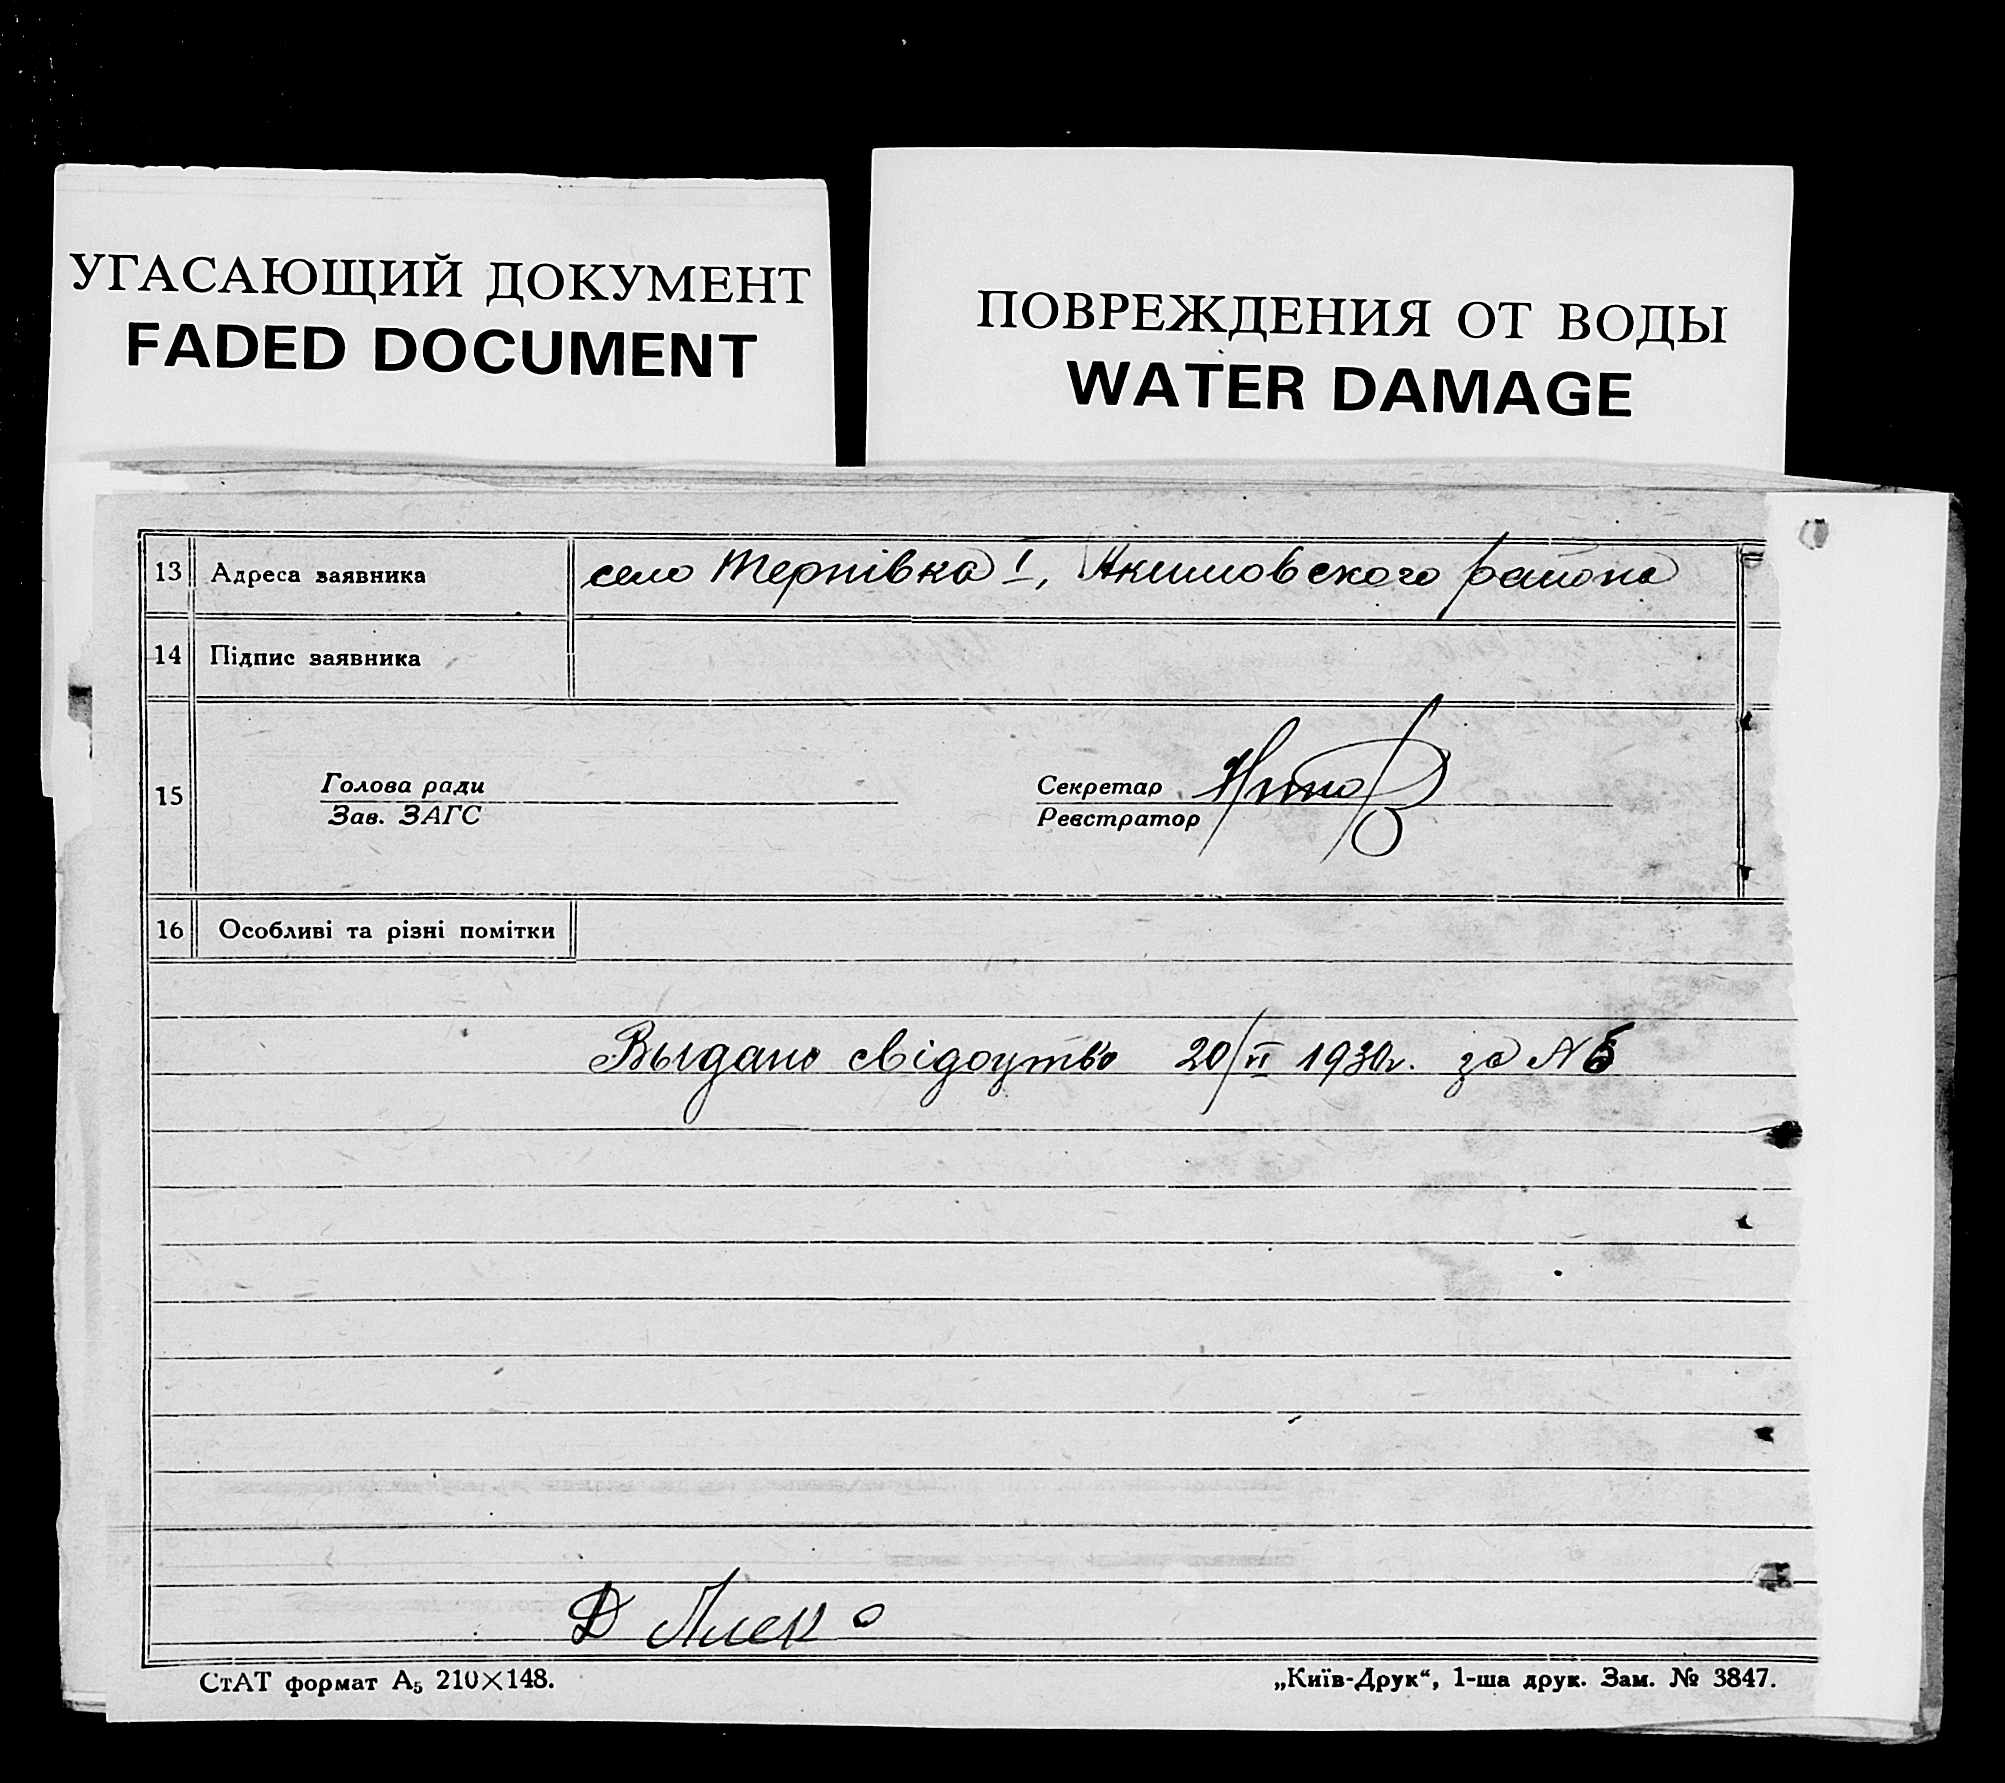 УГАСАЮЩИЙ ДОКУМЕНТ
FADED DOCUMENT
ПОВРЕЖДЕНИЯ ОТ ВОДЫ
WATER DAMAGE
13 Адреса заявника село Терпівка I, Акимовского района
14 Підпис заявника
15 Голова ради Секретар
Зав. ЗАГС Реєстратор
16 Особливі та різні помітки
Выдано свідоцтво 20/VI 1930г. за № 5
СтАТ формат А5 210×148.
„Київ-Друк“, 1-ша друк. Зам. № 3847.